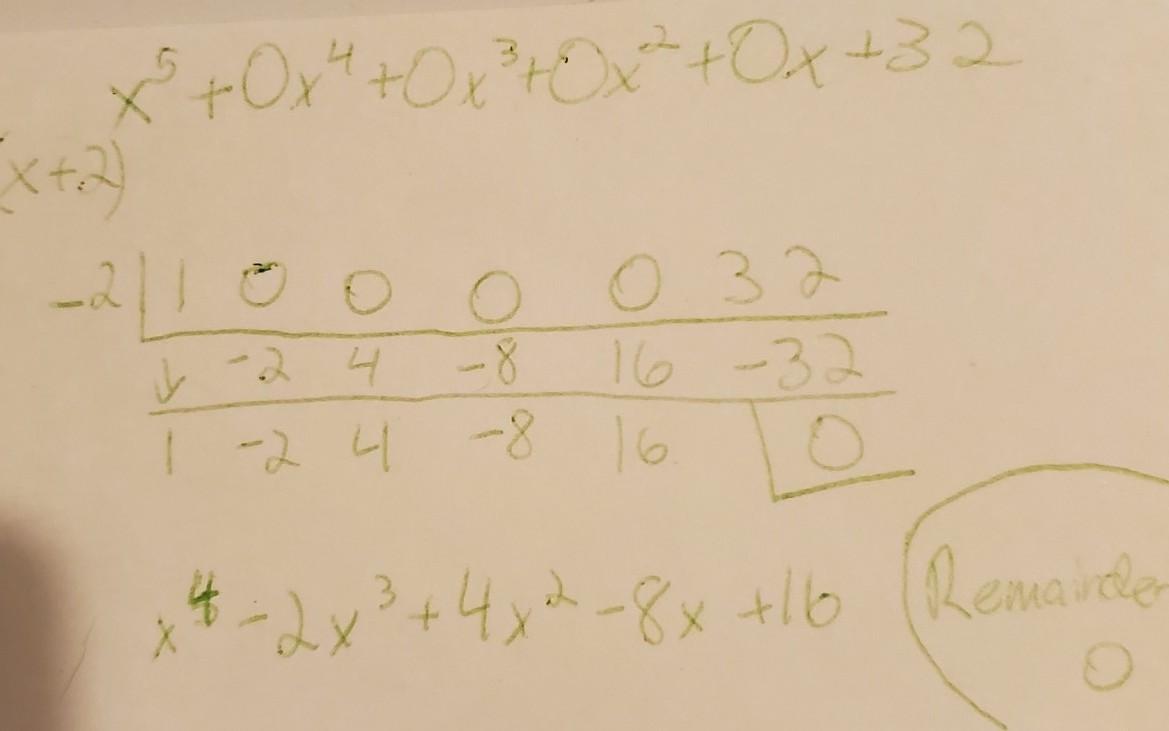 x⁵+0x⁴+0x³+0x²+0x+32
(x+2)
-2 1 0 0 0 0 32
↓ -2 4 -8 16 -32
1 -2 4 -8 16 0
x⁴-2x³+4x²-8x+16
Remainder
0